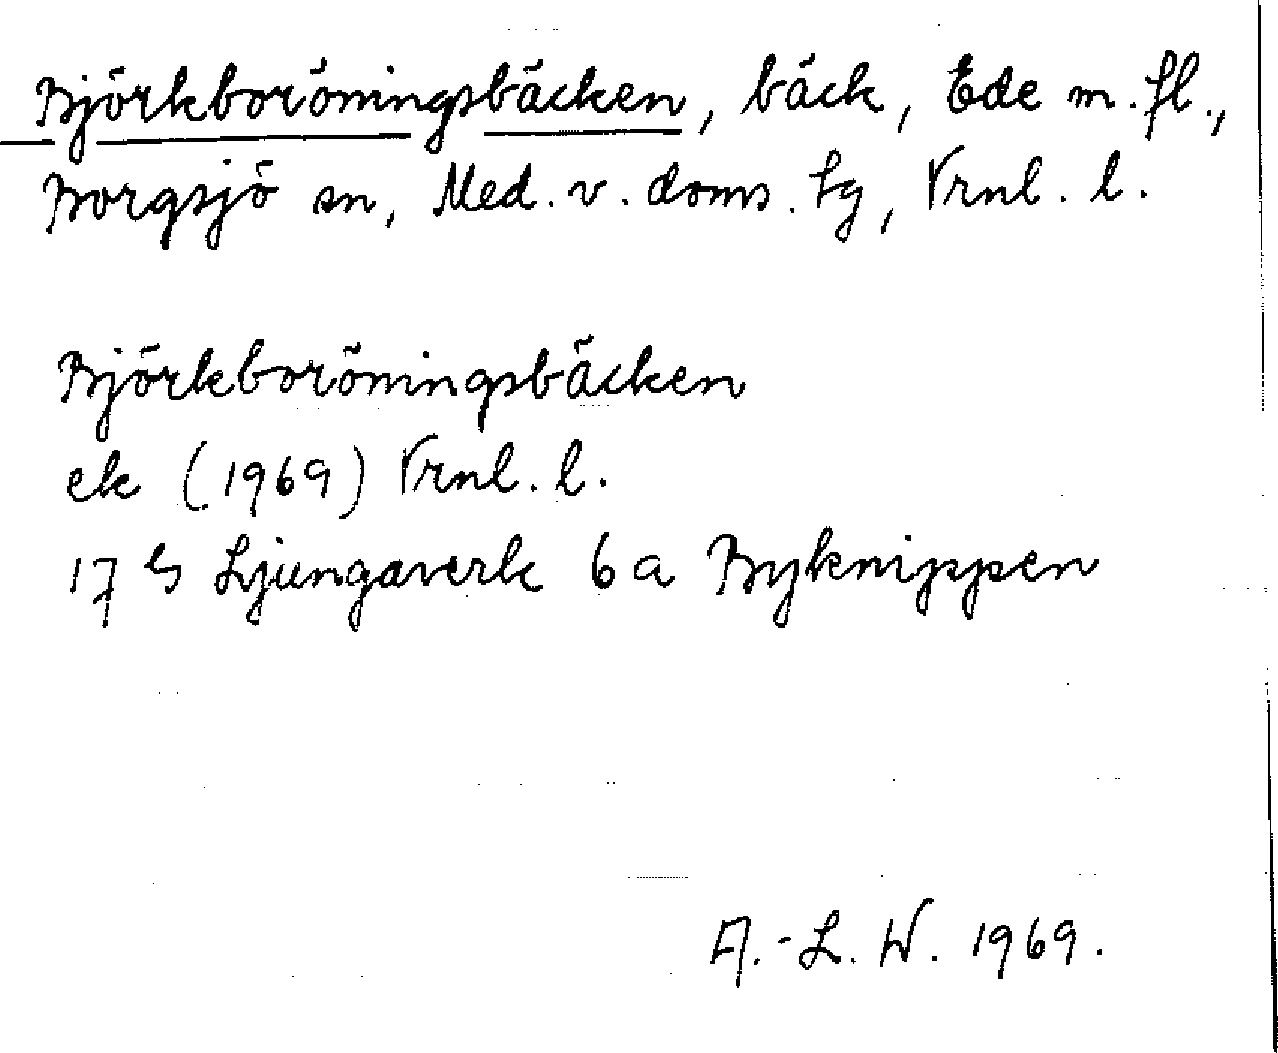 Björkboröningsbäcken, bäck, Ede m. fl.,
Borgsjö sn, Med. v. doms. tg, Vrnl. l.
Björkboröningsbäcken
ek (1969) Vrnl. l.
17 Ljungaverk 6 a Byknippen
A.-L. W. 1969.